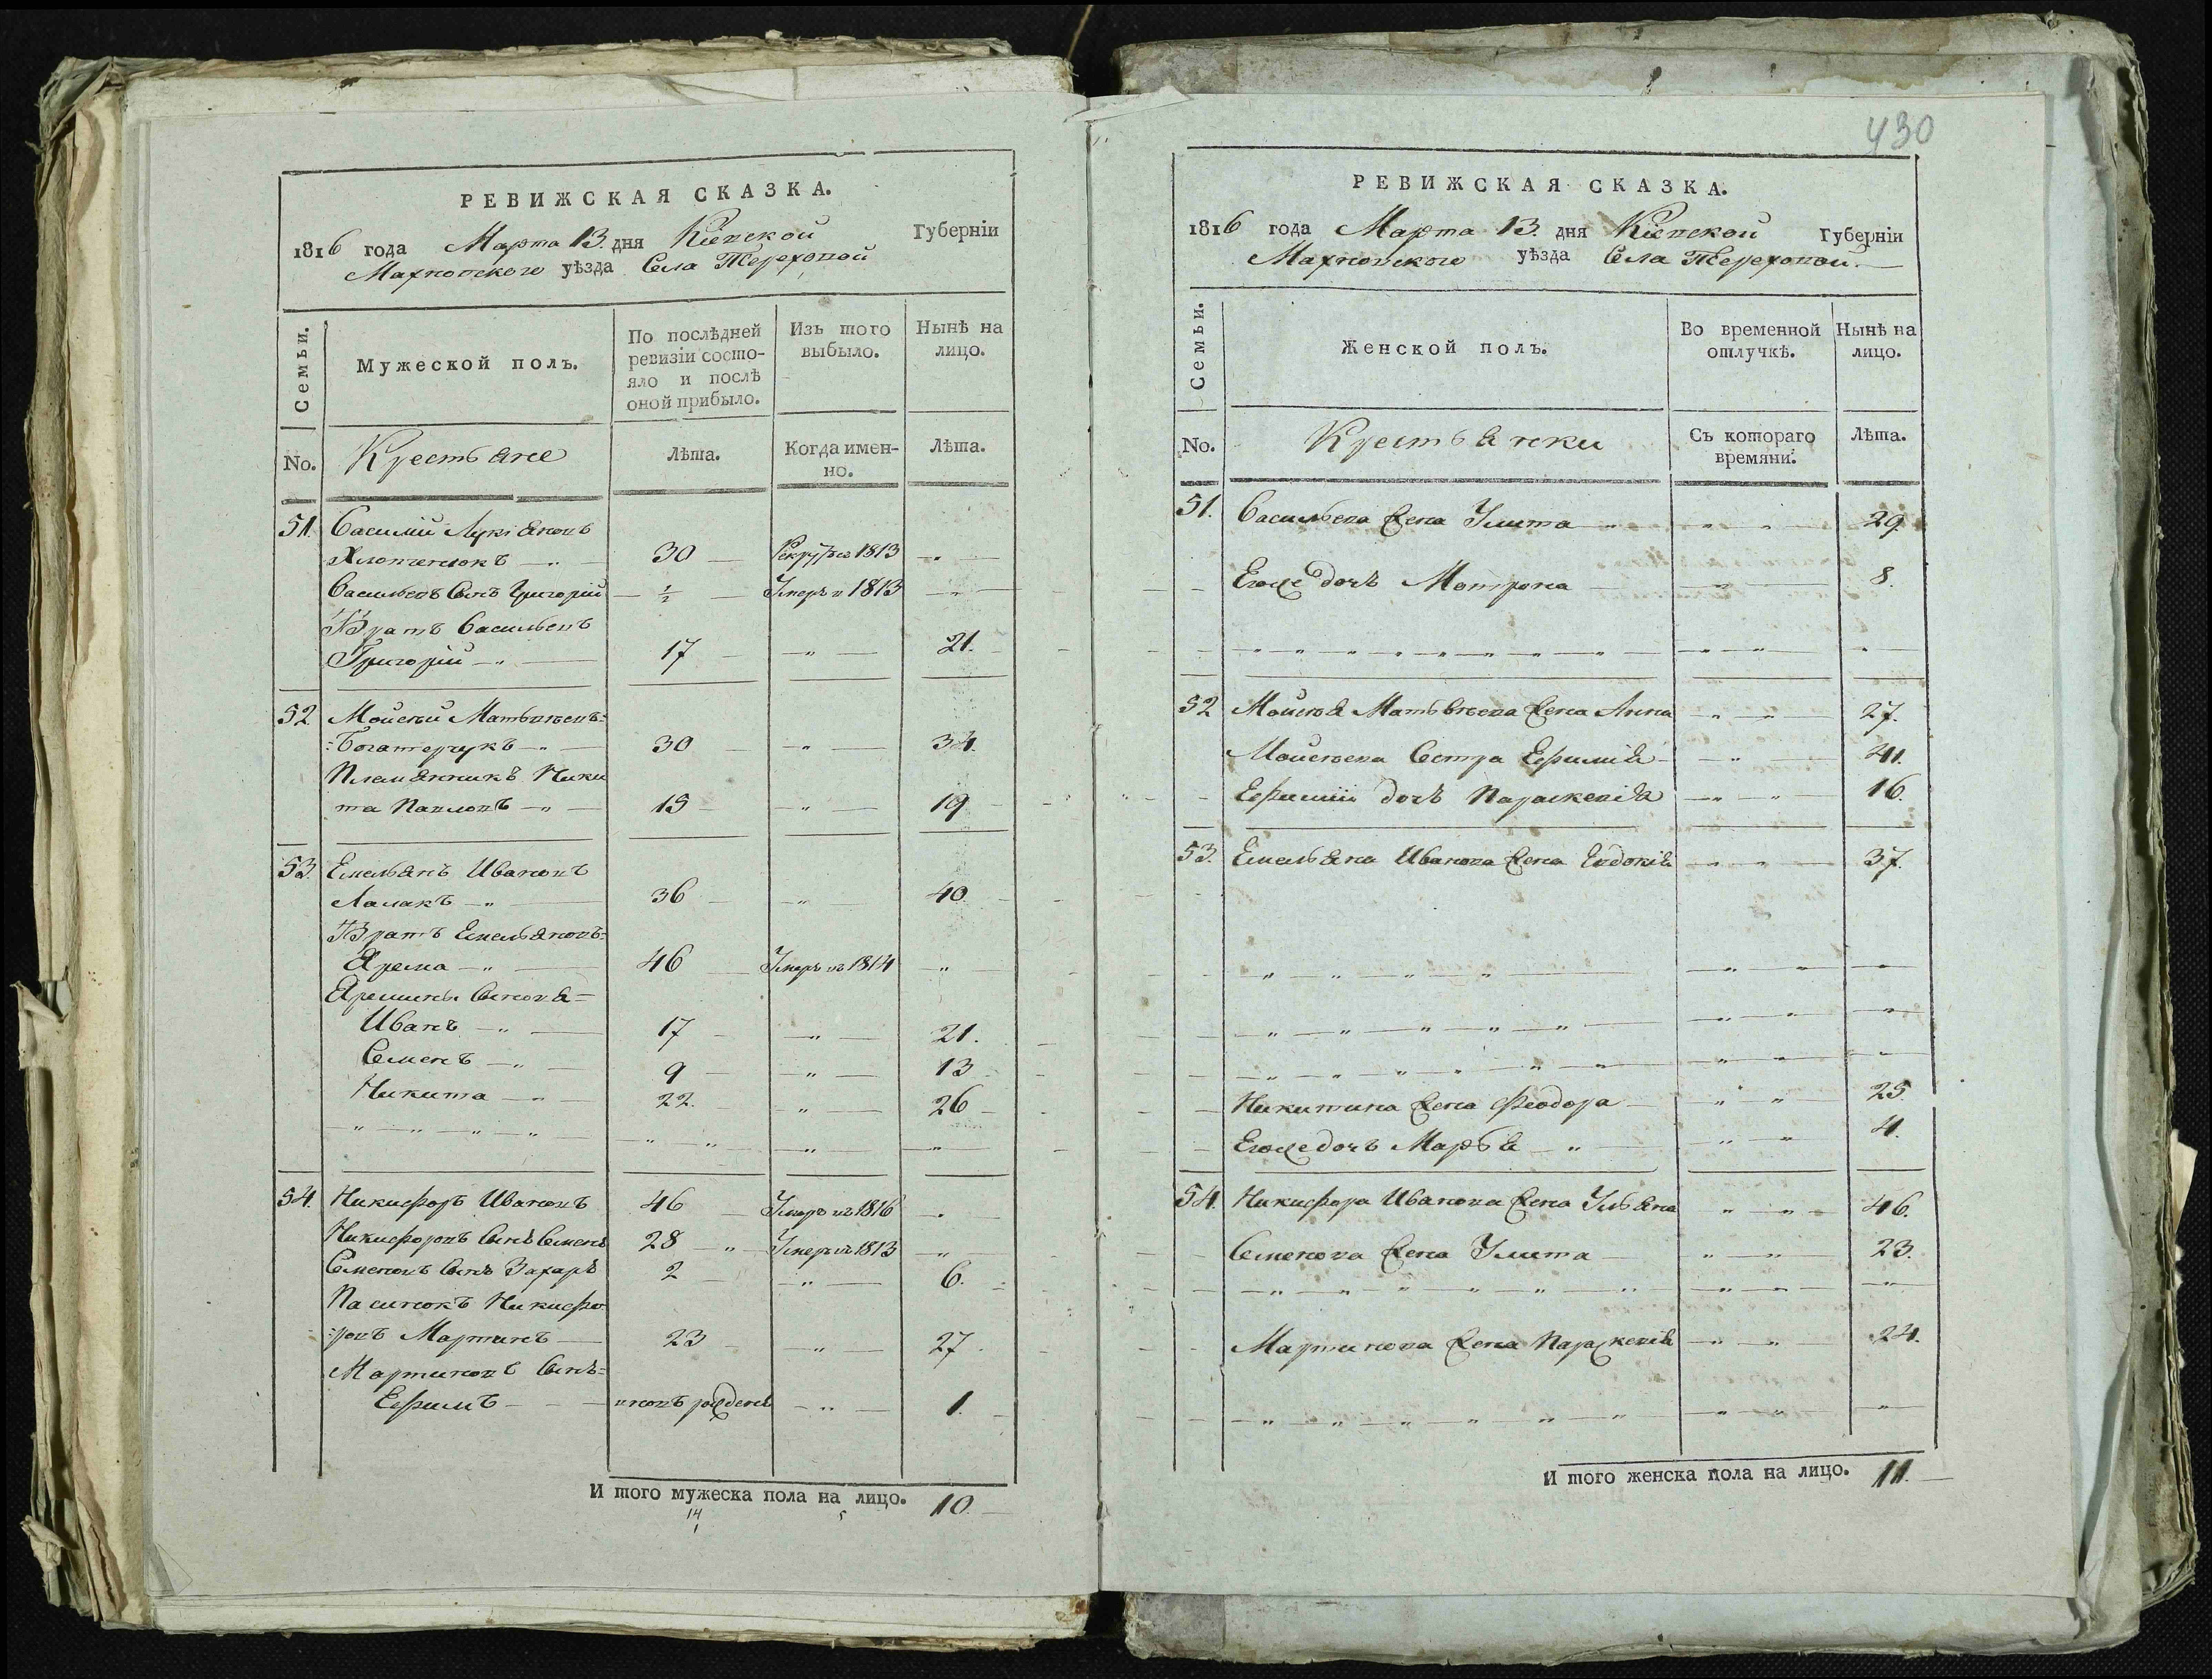 РЕВИЖСКАЯ СКАЗКА.
1816 года Марта 13. дня Кіевской Губерніи
Махновского уѣзда Села Терехової
Семьи.
Мужеской полъ.
По послѣдней
ревизіи состо-
яло и послѣ
оной прибыло.
Изъ того
выбыло.
Нынѣ на
лицо.
No.
Крестьяне
Лѣта.
Когда имен-
но.
Лѣта.
51. Василій Лукіяновъ
Хлопченюкъ 30 Рекрутъ 1813
Васильевъ Сынъ Григорій ½ Умеръ в 1813
Братъ Васильевъ
Григорій 17 21.
52 Мойсей Матвѣевъ
Богатерчукъ 30 34.
Племянникъ Ники
та Павловъ 15 19
53. Емельянъ Ивановъ
Лалакъ 36 40
Братъ Емельяновъ
Ярема 46 Умеръ въ 1814
Яремины Сыновя
Иванъ 17 21.
Семенъ 9 13
Никита 22. 26
54. Никифоръ Ивановъ 46 Умеръ въ 1816
Никифоровъ Сынъ Семенъ 28 Умеръ въ 1813
Семеновъ Сынъ Захаръ 2 6.
Пасинокъ Никифо
ровъ Мартинъ 23 27
Мартиновъ Сынъ
Ефимъ вновь рожденъ 1.
И того мужеска пола на лицо. 10.
14
1
5
430
РЕВИЖСКАЯ СКАЗКА.
1816 года Марта 13. дня Кіевской Губерніи
Махновского уѣзда Села Терехової
Семьи.
Женской полъ.
Во временной
отлучкѣ.
Нынѣ на
лицо.
No.
Крестьянки
Съ котораго
времяни.
Лѣта.
51. Васильева жена Улита 29
Егоже дочь Мотрона 8.
52 Мойсея Матвѣева жена Анна 27.
Мойсеева Сестра Ефимія 41.
Ефиміи дочь Параскевія 16.
53. Емельяна Иванова жена Евдокія 37.
Никитина жена Феодора 25
Егоже дочь Марья 4.
54. Никифора Иванова жена Ульяна 46.
Семенова жена Улита 23.
Мартинова жена Параскевія 24.
И того женска пола на лицо. 11.